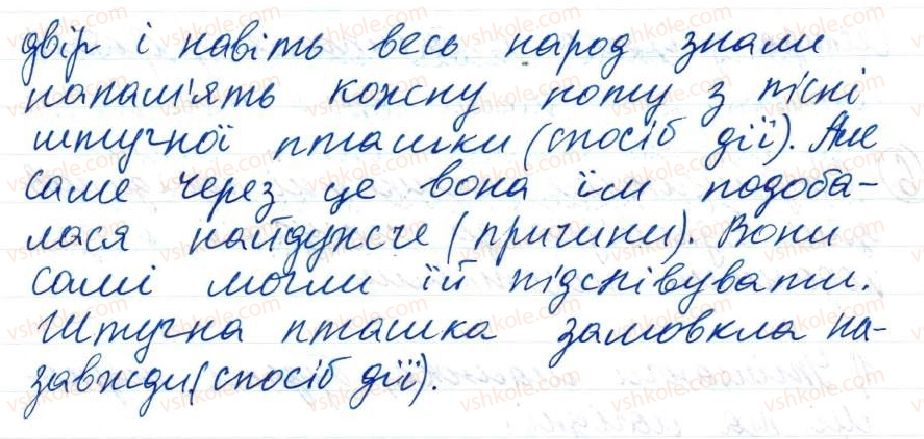 двір і навіть весь народ знали
напам'ять кожну ноту з пісні
штучної пташки (спосіб дії). Але
саме через це вона їм подоба-
лася найдужче (причини). Вони
самі могли їй підспівувати.
Штучна пташка замовкла на-
завжди (спосіб дії).